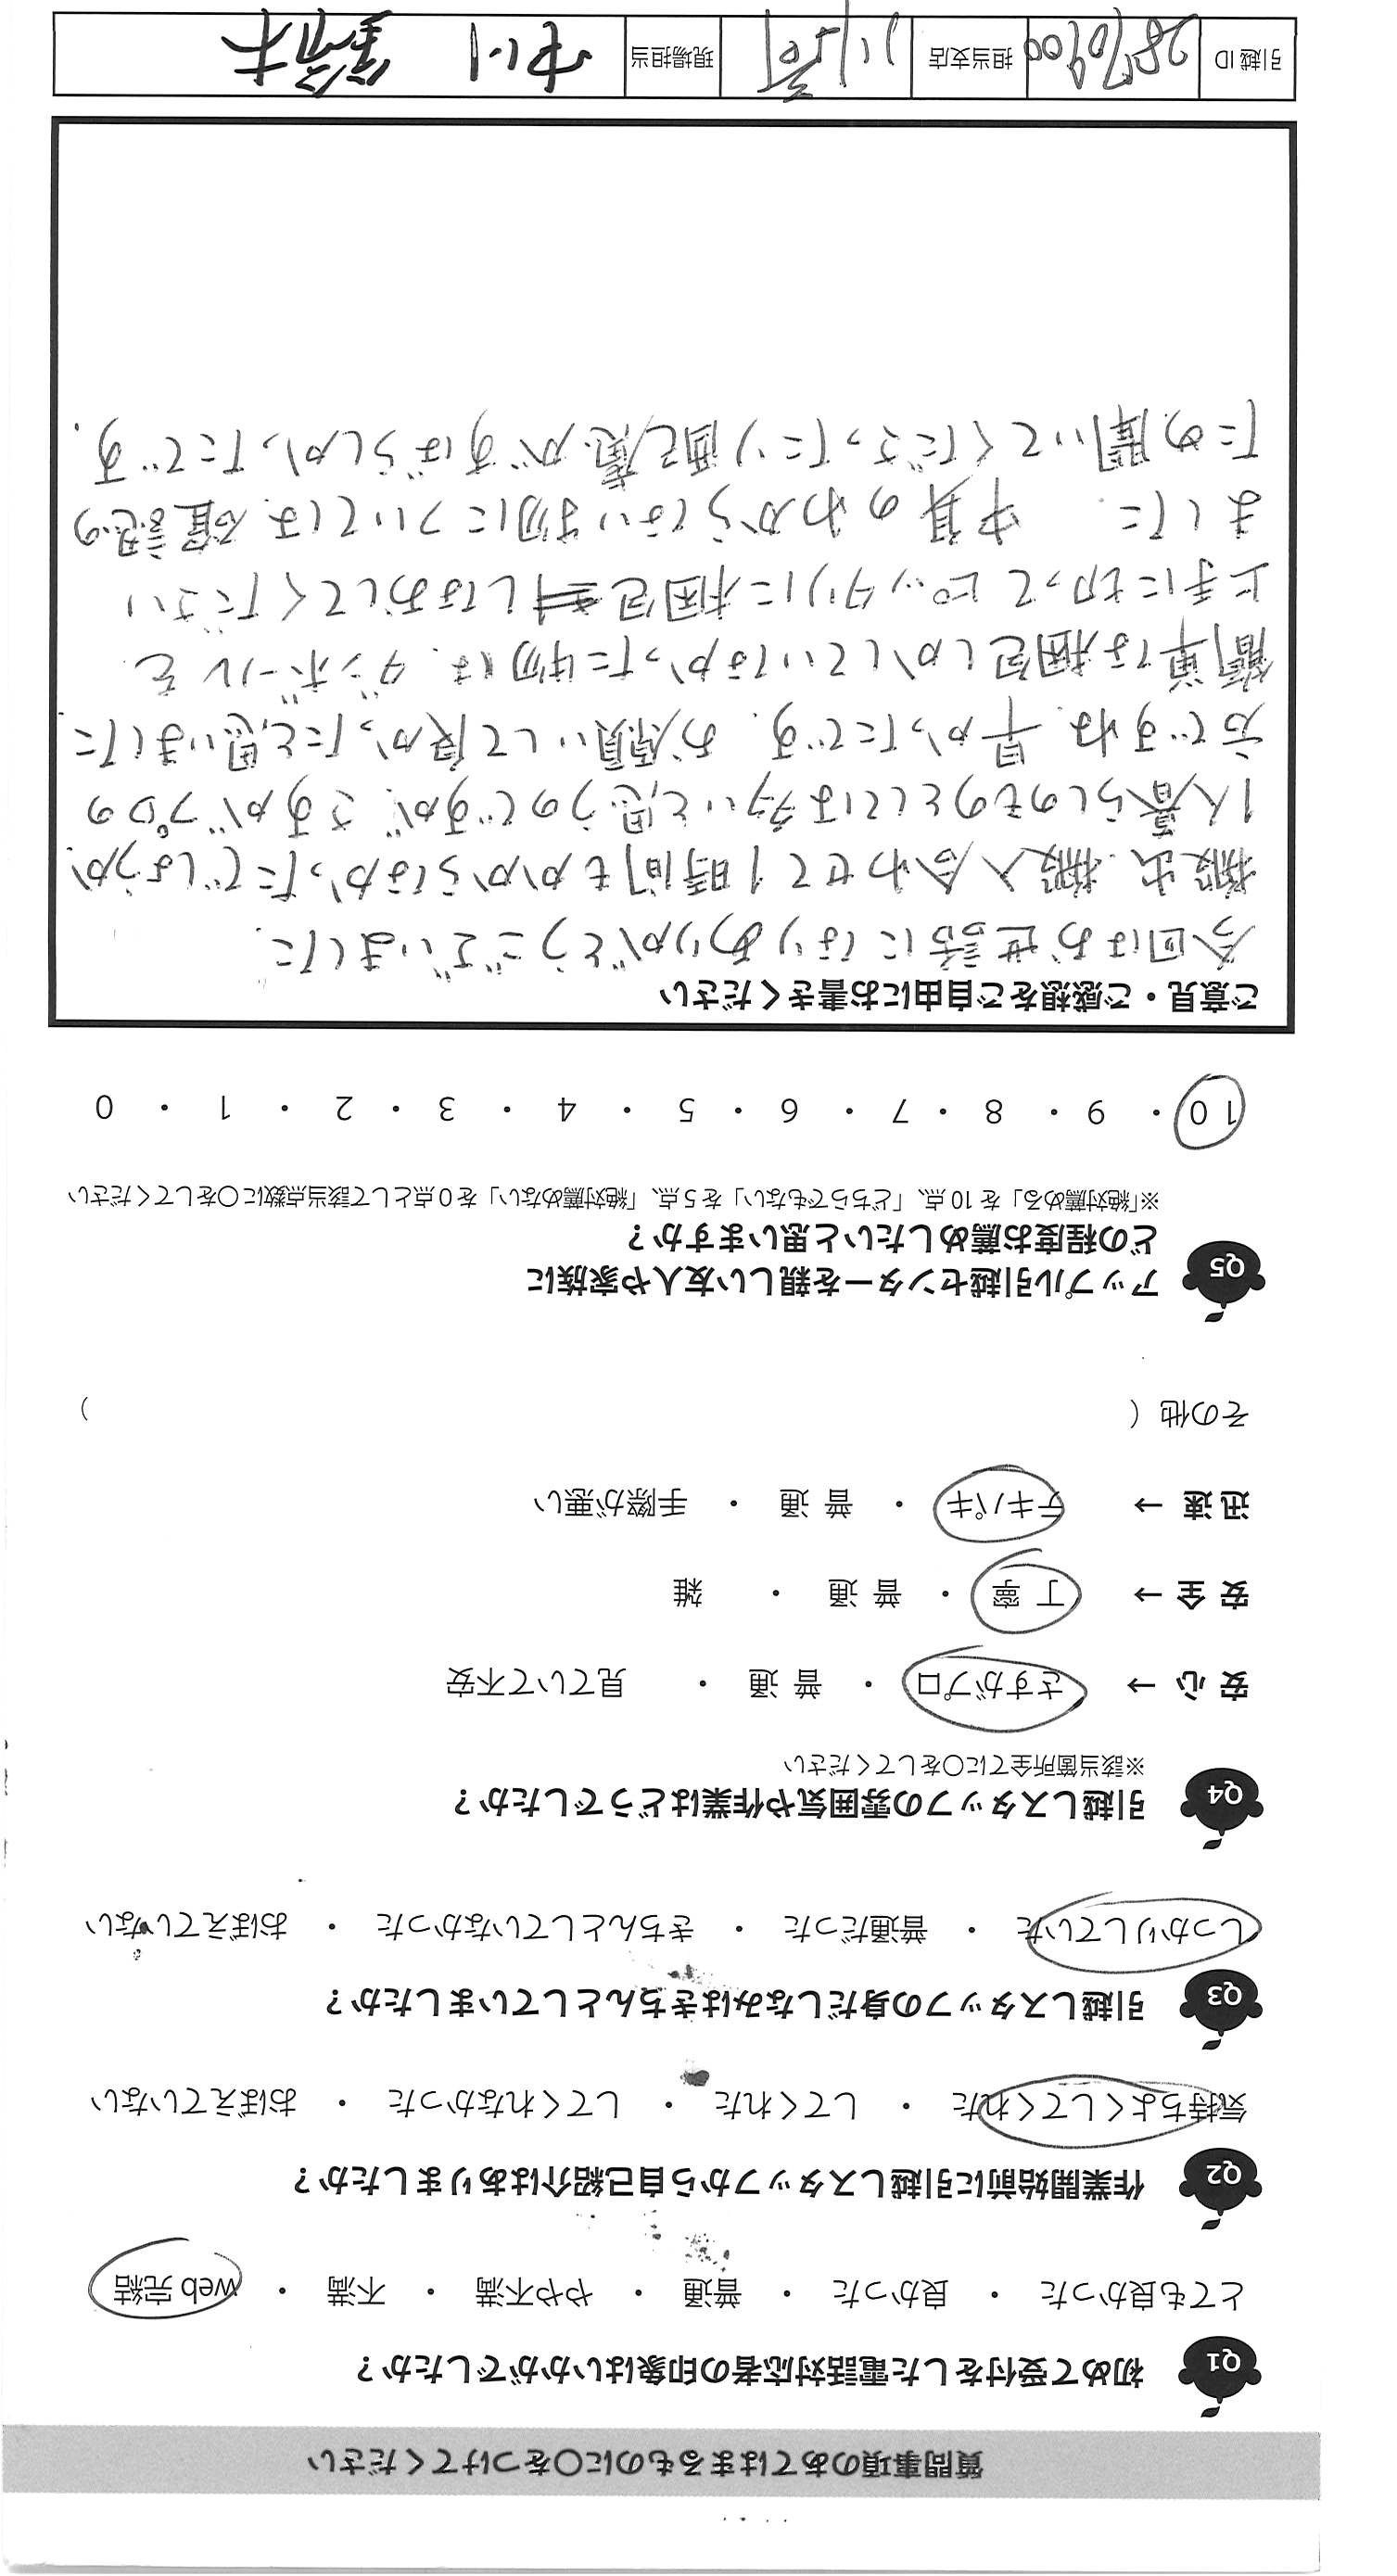 質問事項のあてはまるものに〇をつけてください
Q1 初めて受付をした電話対応者の印象はいかがでしたか？
とても良かった ・ 良かった ・ 普通 ・ やや不満 ・ 不満 ・ web 完結
Q2 作業開始前に引越しスタッフから自己紹介はありましたか？
気持ちよくしてくれた ・ してくれた ・ してくれなかった ・ おぼえていない
Q3 引越しスタッフの身だしなみはきちんとしていましたか？
しっかりしていた ・ 普通だった ・ きちんとしていなかった ・ おぼえていない
Q4 引越しスタッフの雰囲気や作業はどうでしたか？
※該当箇所全てに〇をしてください
安 心 → さすがプロ ・ 普 通 ・ 見ていて不安
安 全 → 丁 寧 ・ 普 通 ・ 雑
迅 速 → テキパキ ・ 普 通 ・ 手際が悪い
その他（ ）
Q5 アップル引越センターを親しい友人や家族に
どの程度お薦めしたいと思いますか？
※「絶対薦める」を 10 点、「どちらでもない」を 5 点、「絶対薦めない」を 0 点として該当点数に〇をしてください
10 ・ 9 ・ 8 ・ 7 ・ 6 ・ 5 ・ 4 ・ 3 ・ 2 ・ 1 ・ 0
ご意見・ご感想をご自由にお書きください
今回はお世話になりありがとうございました。
搬出、搬入合わせて1時間もかからなかったでしょうか。
1人暮らしのものとしては多いと思うのですが、さすがプロの
方ですね。早かったです。お願いして良かったと思いました。
簡単な梱包しかしていなかった物は、ダンボールを
上手に切ってピッタリに梱包しなおしてください
ました。中身のわからない物については、確認の
ため聞いてくださったり配慮がすばらしかったです。
引越 ID 2870900 担当支店 川崎 現場担当 中川